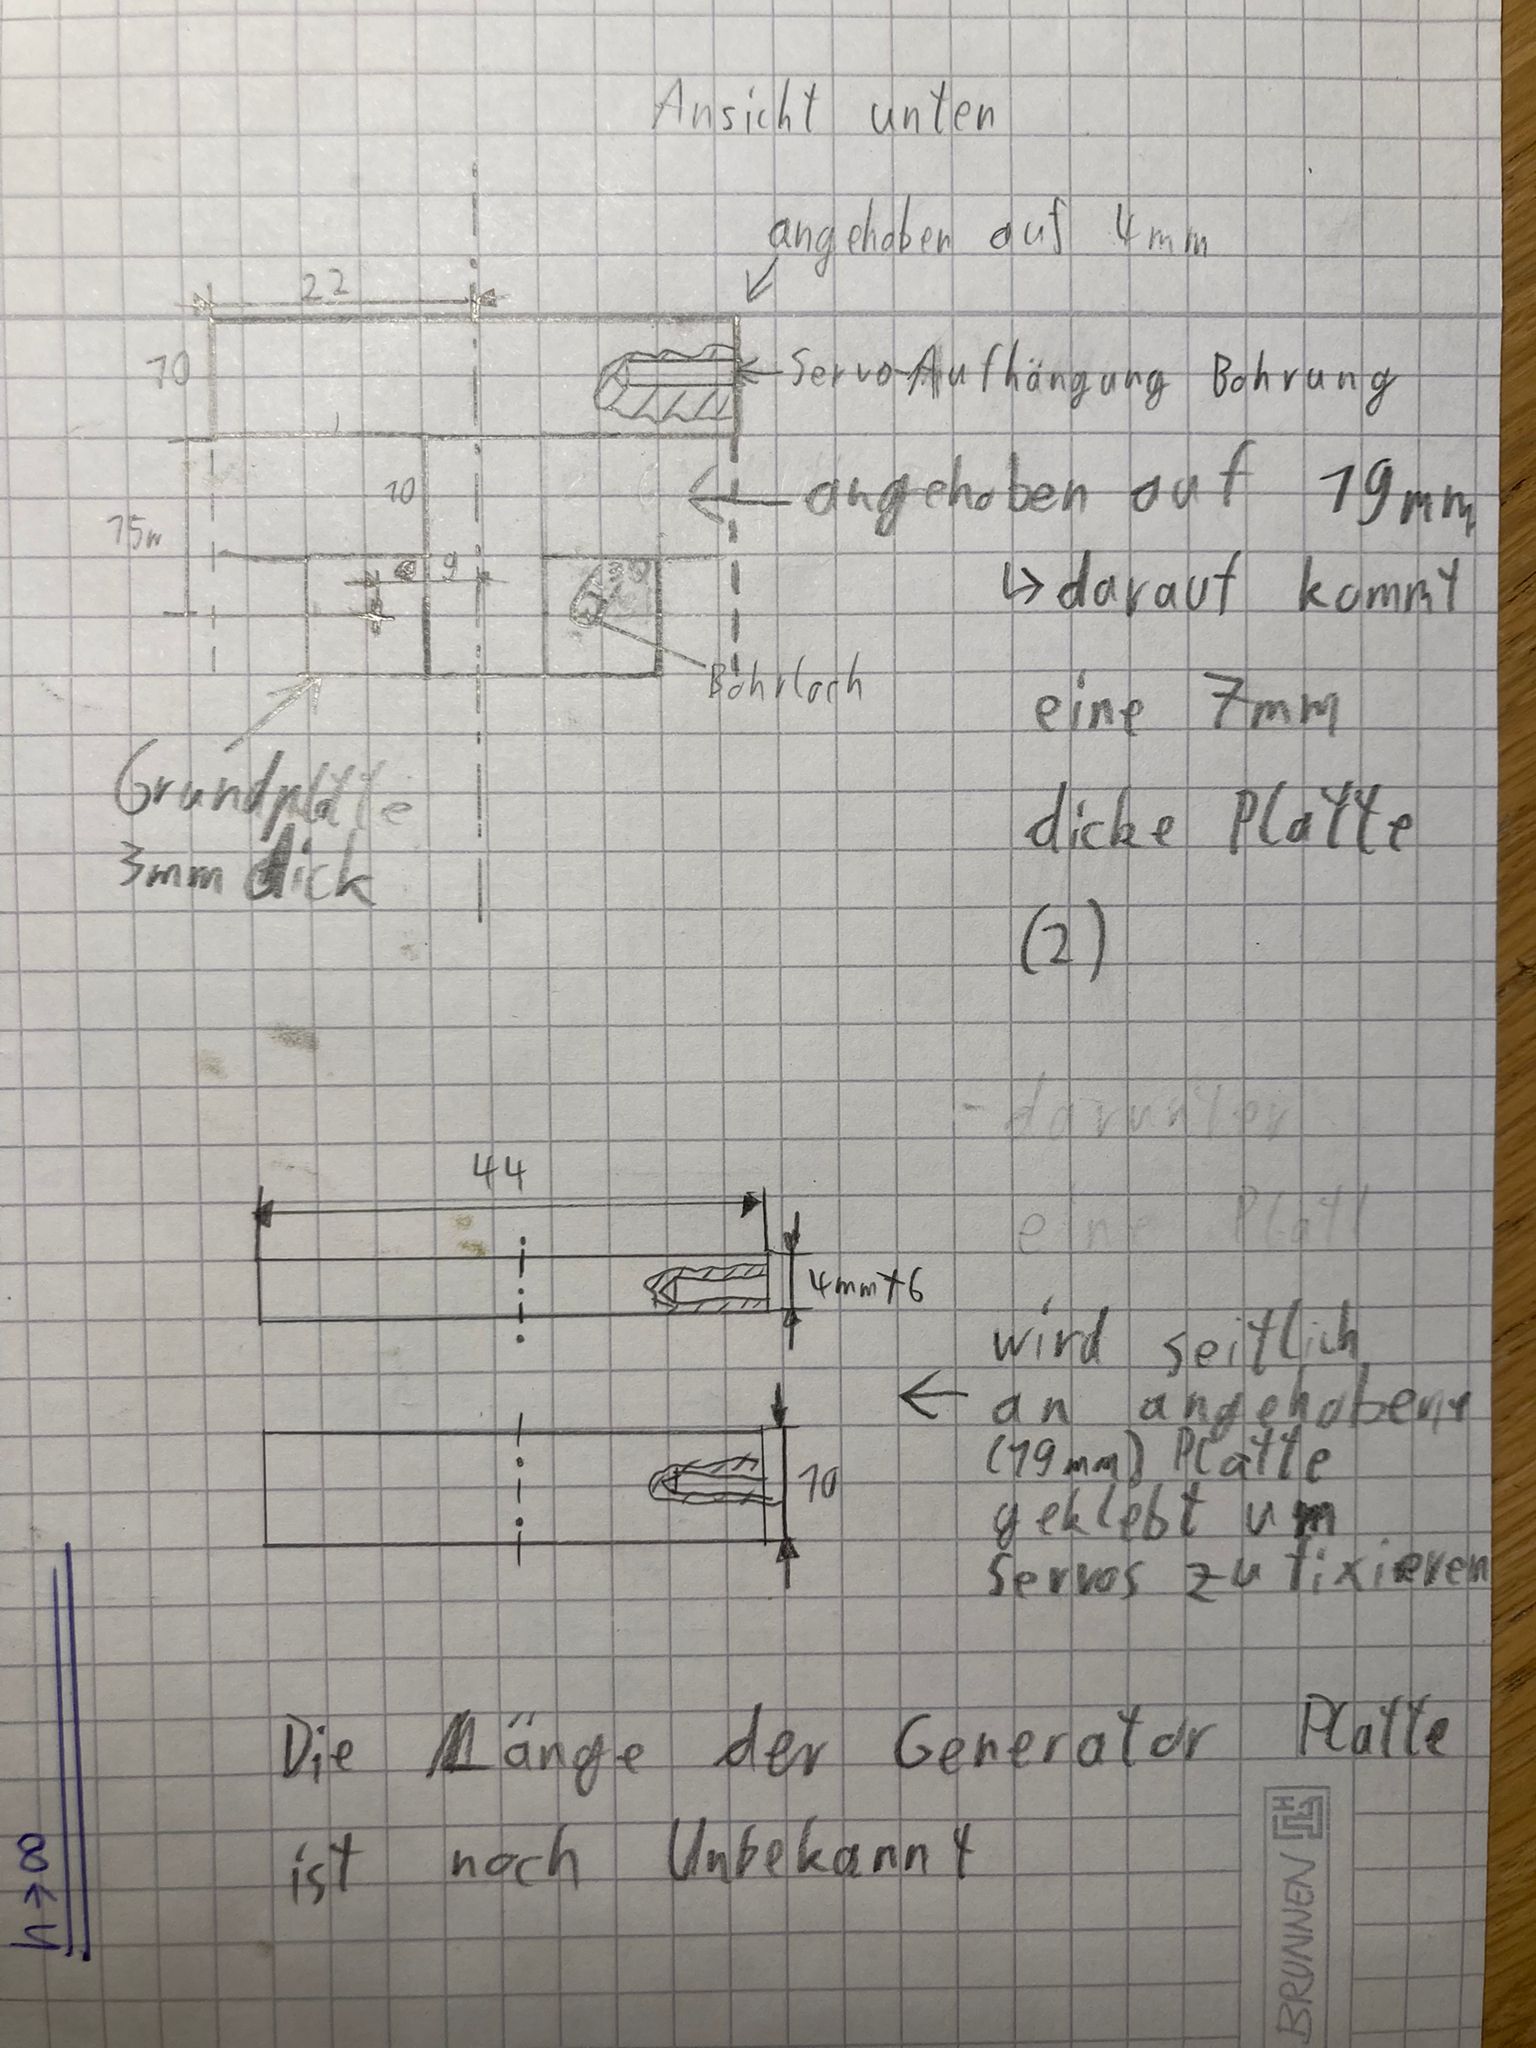 Ansicht unten
angehoben auf 4mm
22
10
Servo Aufhängung Bohrung
10
angehoben auf 19mm
15
9
↳ darauf kommt
Bohrloch
eine 7mm
Grundplatte
3mm dick
dicke Platte
(2)
- darunter
44
eine Platt
4mm+6
wird seitlich
an angehobene
(19mm) Platte
10
geklebt um
Servos zu fixieren
Die Länge der Generator Platte
ist noch Unbekannt
n→∞
BRUNNEN